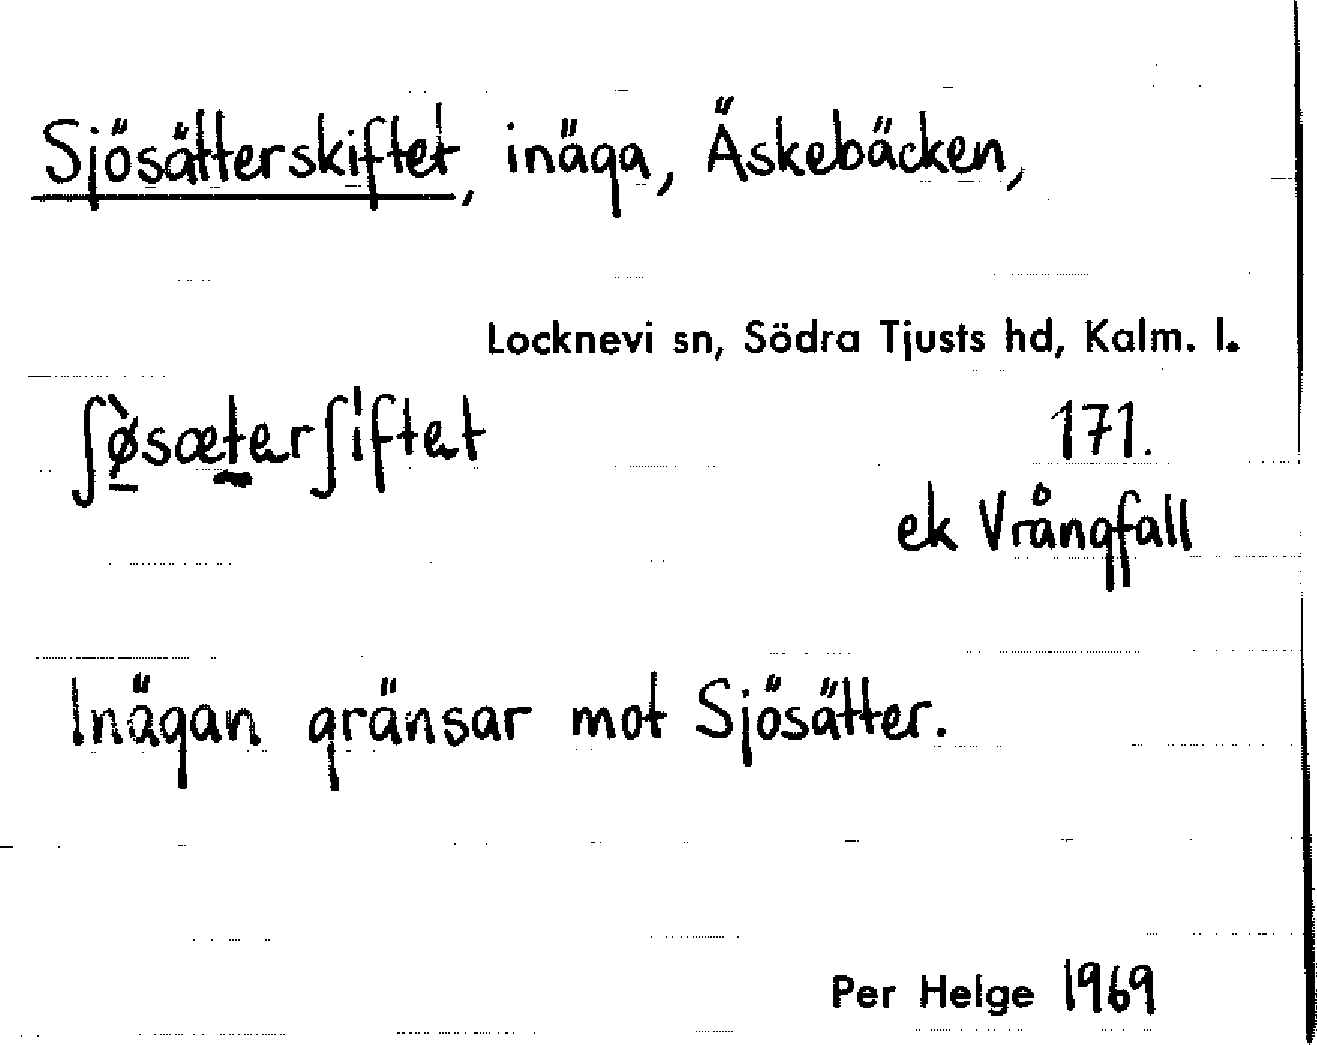 Sjösätterskiftet, inäga, Äskebäcken,
Locknevi sn, Södra Tjusts hd, Kalm. l.
ʃø̀sætarʃiftat 171.
ek Vrångfall
Inägan gränsar mot Sjösätter.
Per Helge 1969